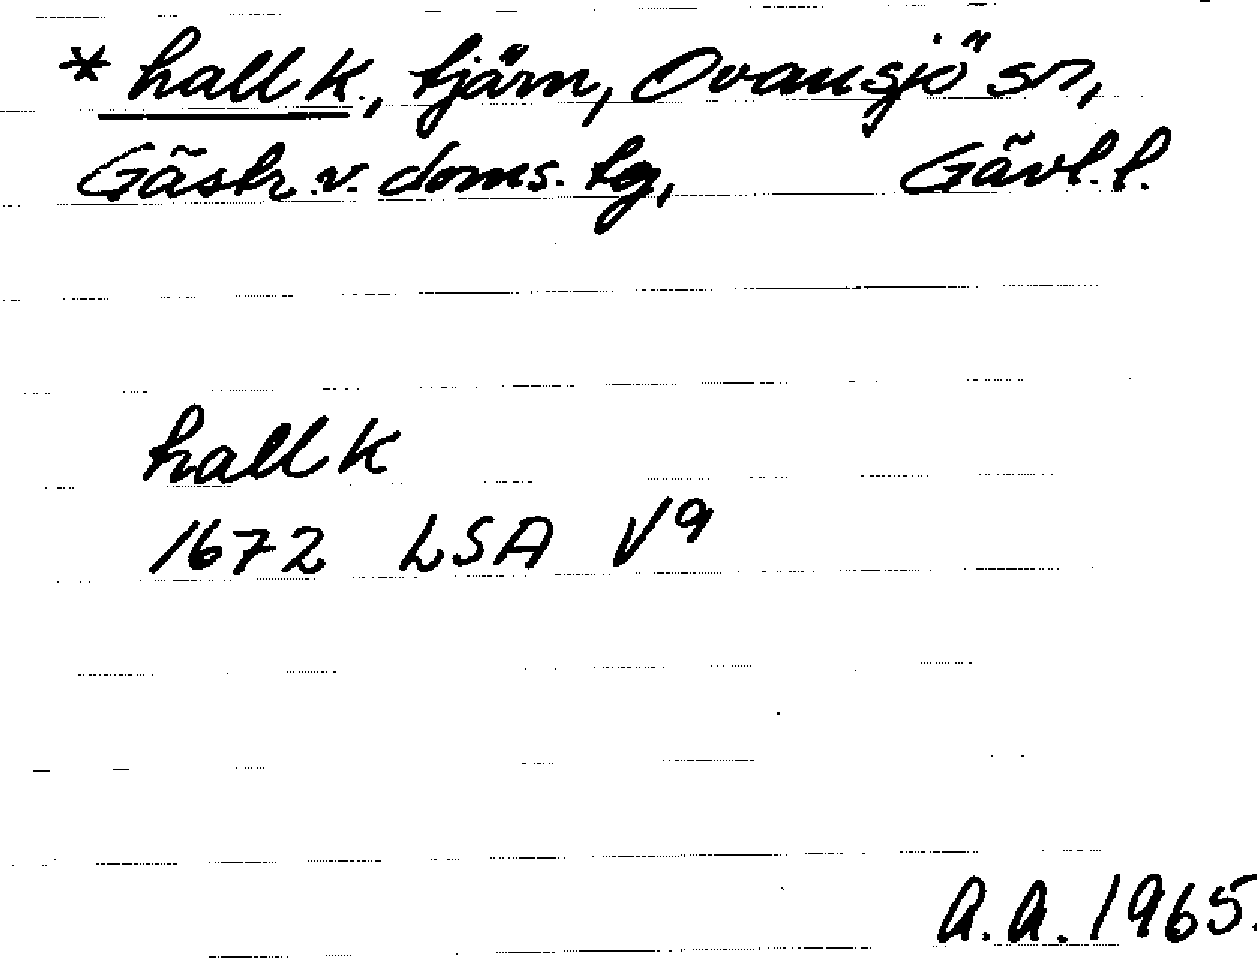 * hall k., tjärn, Ovansjö sn,
Gästr. v. doms. tg, Gävl. l.
hall k
1672 LSA V9
A.A. 1965.